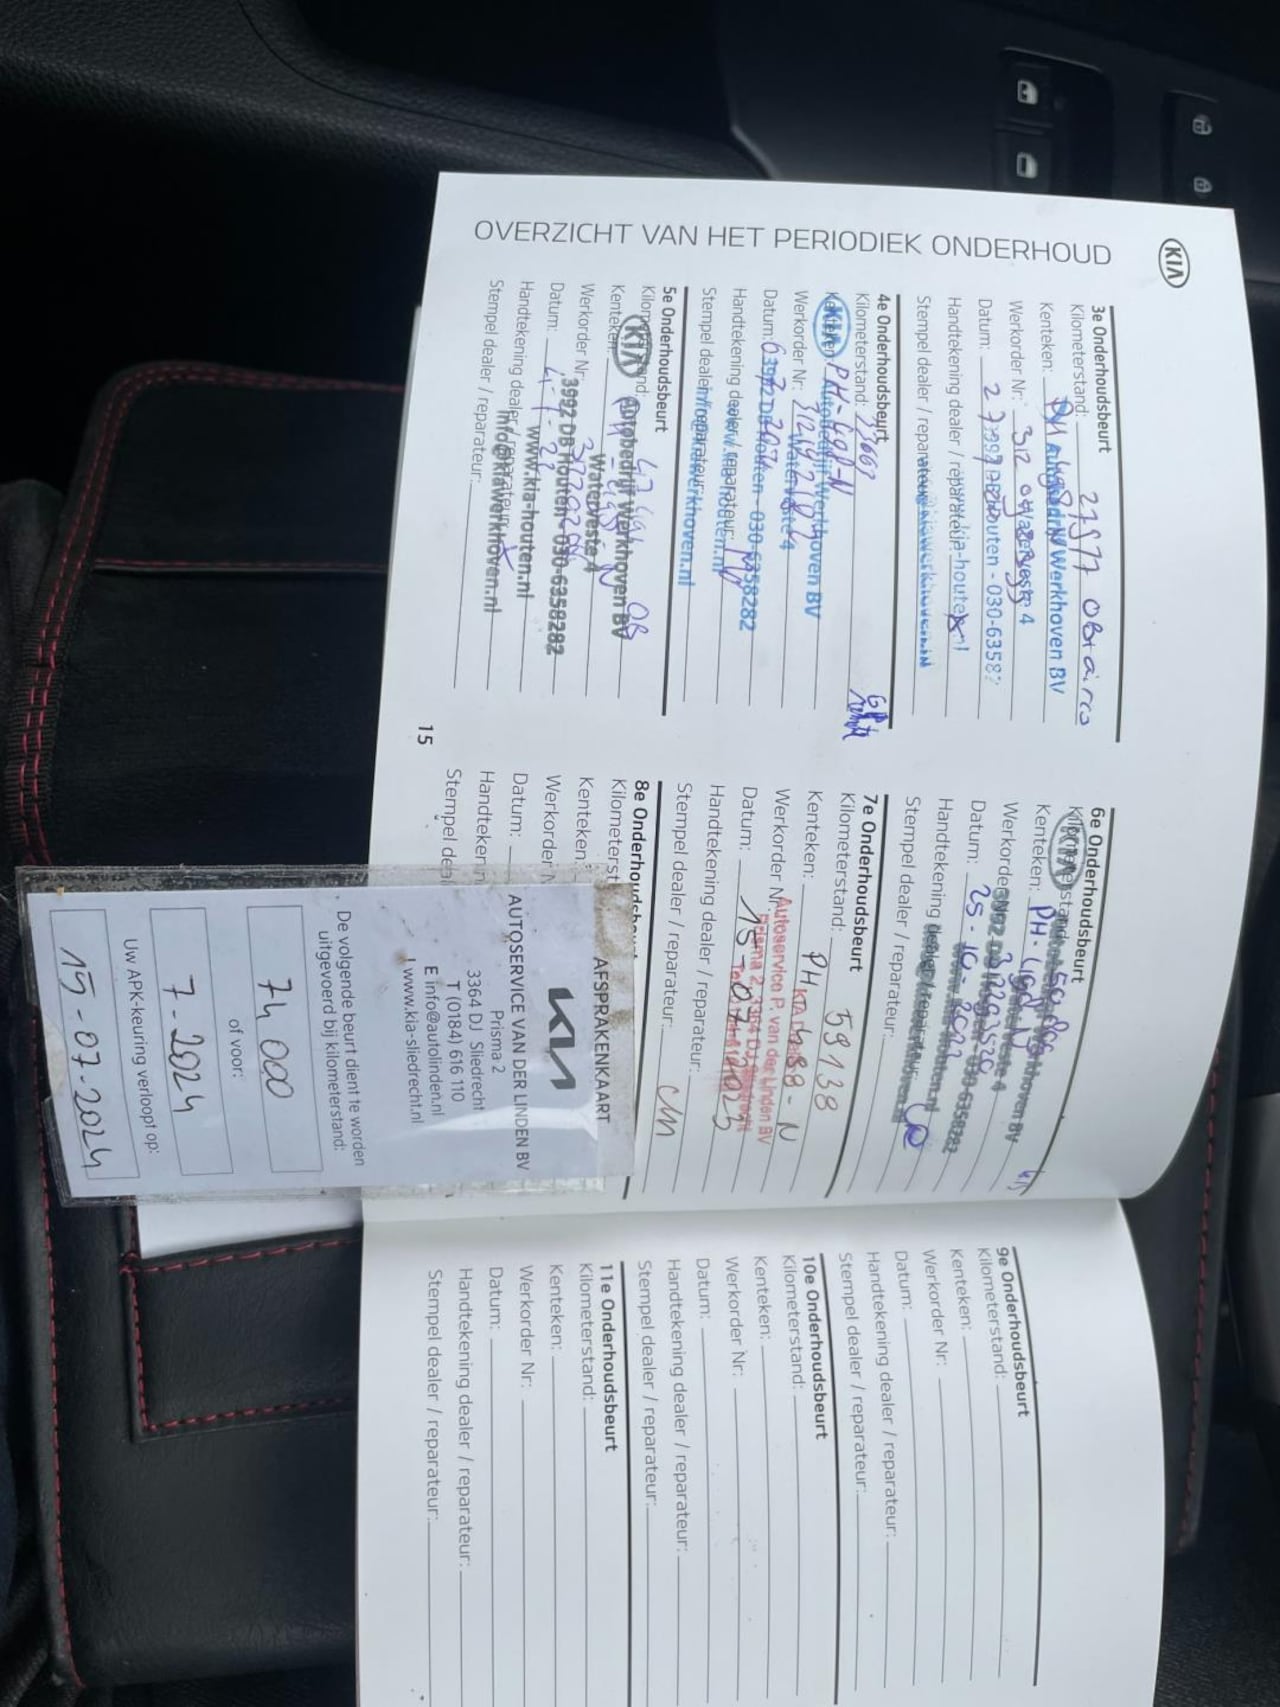 KIA
OVERZICHT VAN HET PERIODIEK ONDERHOUD
3e Onderhoudsbeurt
Kilometerstand: 21577
Kenteken:
Autobedrijf Werkhoven BV
Werkorder Nr: 312
Waterveste 4
Datum:
Houten - 030-6358
Handtekening dealer / reparateur:
Stempel dealer / reparateur:
4e Onderhoudsbeurt
Kilometerstand:
KIA
Autobedrijf Werkhoven BV
Werkorder Nr:
Waterveste 4
Datum:
3992 DB Houten - 030-6358282
Handtekening dealer / reparateur:
www.kia-houten.nl
Stempel dealer / reparateur:
info@kiawerkhoven.nl
5e Onderhoudsbeurt
Kilometerstand:
KIA
Kenteken:
Autobedrijf Werkhoven BV
Werkorder Nr:
Waterveste 4
Datum:
3992 DB Houten - 030-6358282
Handtekening dealer / reparateur:
www.kia-houten.nl
Stempel dealer / reparateur:
info@kiawerkhoven.nl
15
6e Onderhoudsbeurt
Kilometerstand:
KIA
Kenteken: PH-
Werkorder
Datum: 25-10-2022
Handtekening dealer / reparateur:
Stempel dealer / reparateur:
7e Onderhoudsbeurt
Kilometerstand: 59138
Kenteken: PH
Werkorder Nr:
Autoservice P. van der Linden BV
Datum: 15-07-2023
Prisma 2, 3364 DJ Sliedrecht
Handtekening dealer / reparateur:
Stempel dealer / reparateur: cm
8e Onderhoudsbeurt
Kilometerst
Kenteken:
Werkorder N
Datum:
Handteken
Stempel dea
AFSPRAKENKAART
KIA
AUTOSERVICE VAN DER LINDEN BV
Prisma 2
3364 DJ Sliedrecht
T (0184) 616 110
E info@autolinden.nl
I www.kia-sliedrecht.nl
De volgende beurt dient te worden
uitgevoerd bij kilometerstand:
74 000
of voor:
7-2024
Uw APK-keuring verloopt op:
15-07-2024
9e Onderhoudsbeurt
Kilometerstand:
Kenteken:
Werkorder Nr:
Datum:
Handtekening dealer / reparateur:
Stempel dealer / reparateur:
10e Onderhoudsbeurt
Kilometerstand:
Kenteken:
Werkorder Nr:
Datum:
Handtekening dealer / reparateur:
Stempel dealer / reparateur:
11e Onderhoudsbeurt
Kilometerstand:
Kenteken:
Werkorder Nr:
Datum:
Handtekening dealer / reparateur:
Stempel dealer / reparateur: